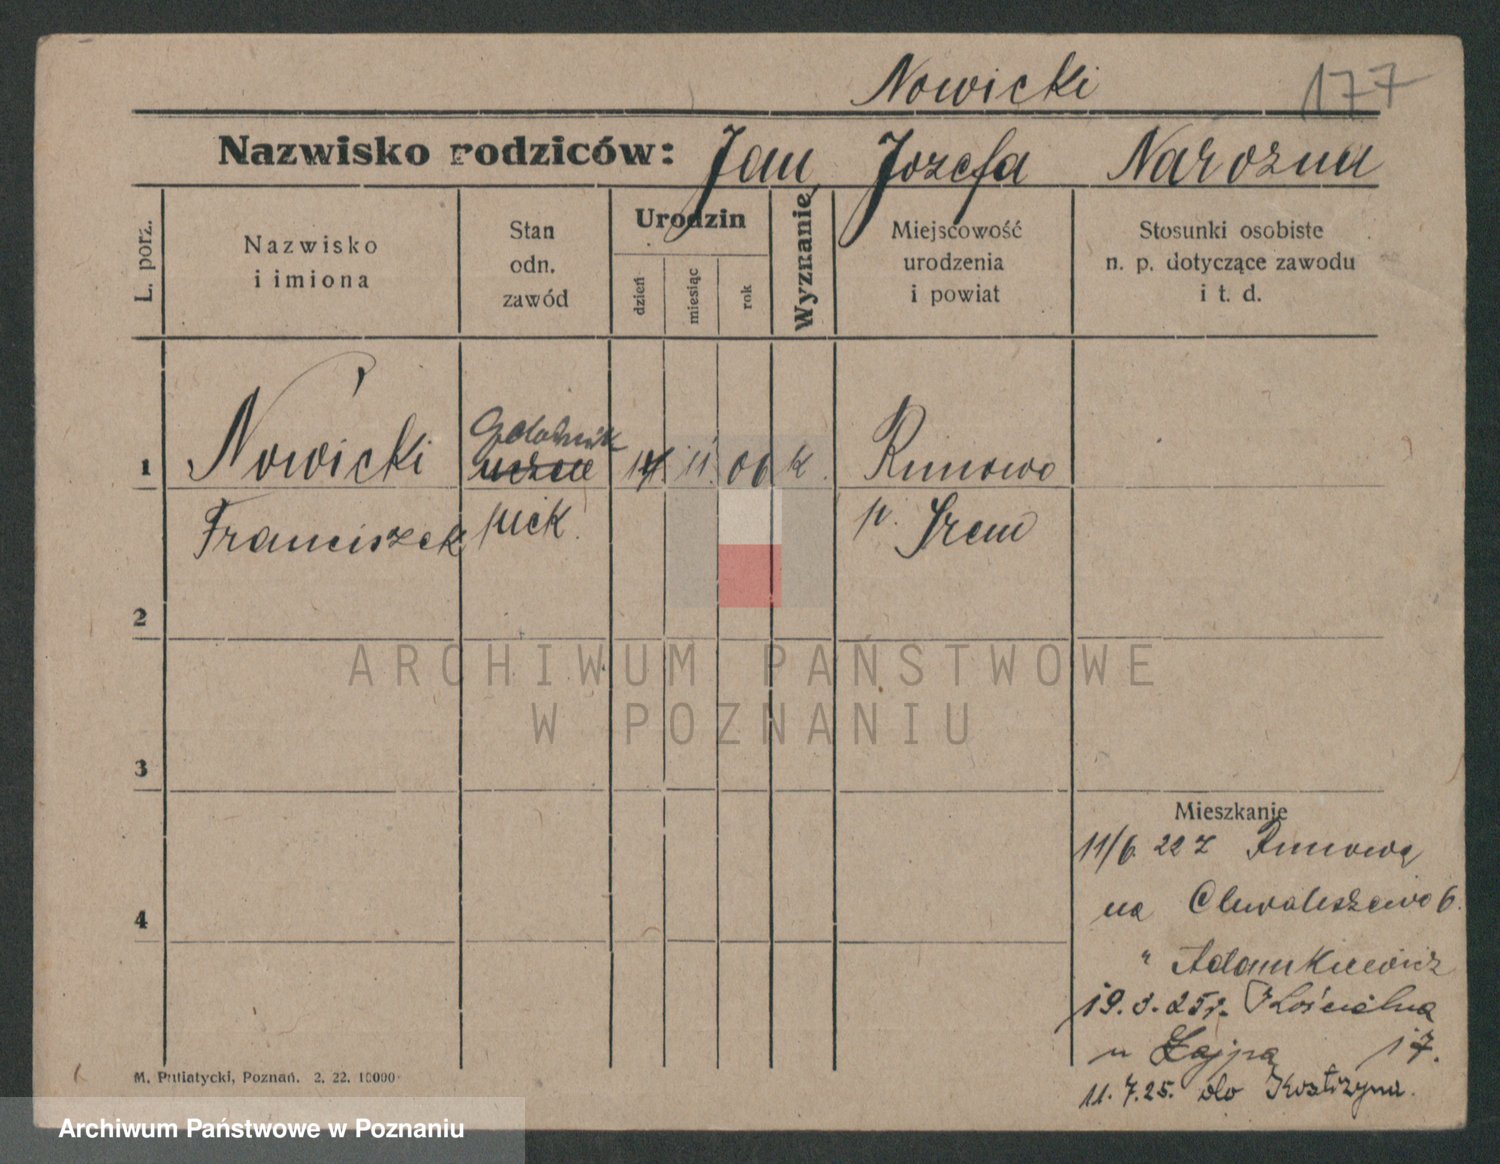 Nowicki 177
Nazwisko rodziców: Jan, Józefa Narożna
L. porz.
Nazwisko
i imiona
Stan
odn.
zawód
Urodzin
dzień
miesiąc
rok
Wyznanie
Miejscowość
urodzenia
i powiat
Stosunki osobiste
n. p. dotyczące zawodu
i t. d.
1 Nowicki
Franciszek
uczeń
piek.
11 k.
Runowo
p. Śrem
2
3
4
Mieszkanie
11/6 22 z Runowa
na Chwaliszewo 6.
" Adamkiewicz
19.3.25 r. Kościelna
u Zająca 17.
11.7.25. do Kostrzyna.
M. Putiatycki, Poznań. 2. 22. 10000
ARCHIWUM PAŃSTWOWE
W POZNANIU
Archiwum Państwowe w Poznaniu